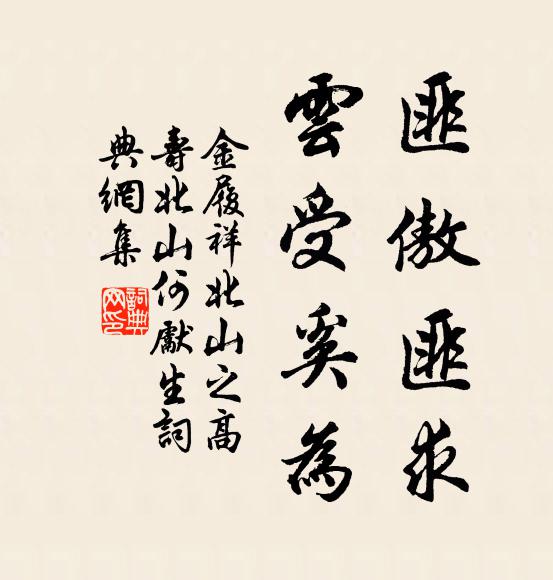 匪傲匪求
雲受奚為
金履祥北山之高
壽北山何獻生詞
典網集
詞典
网印